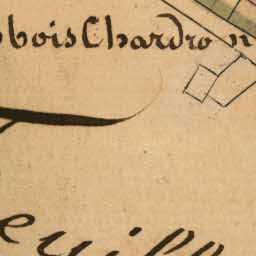 bois Chardron
euill